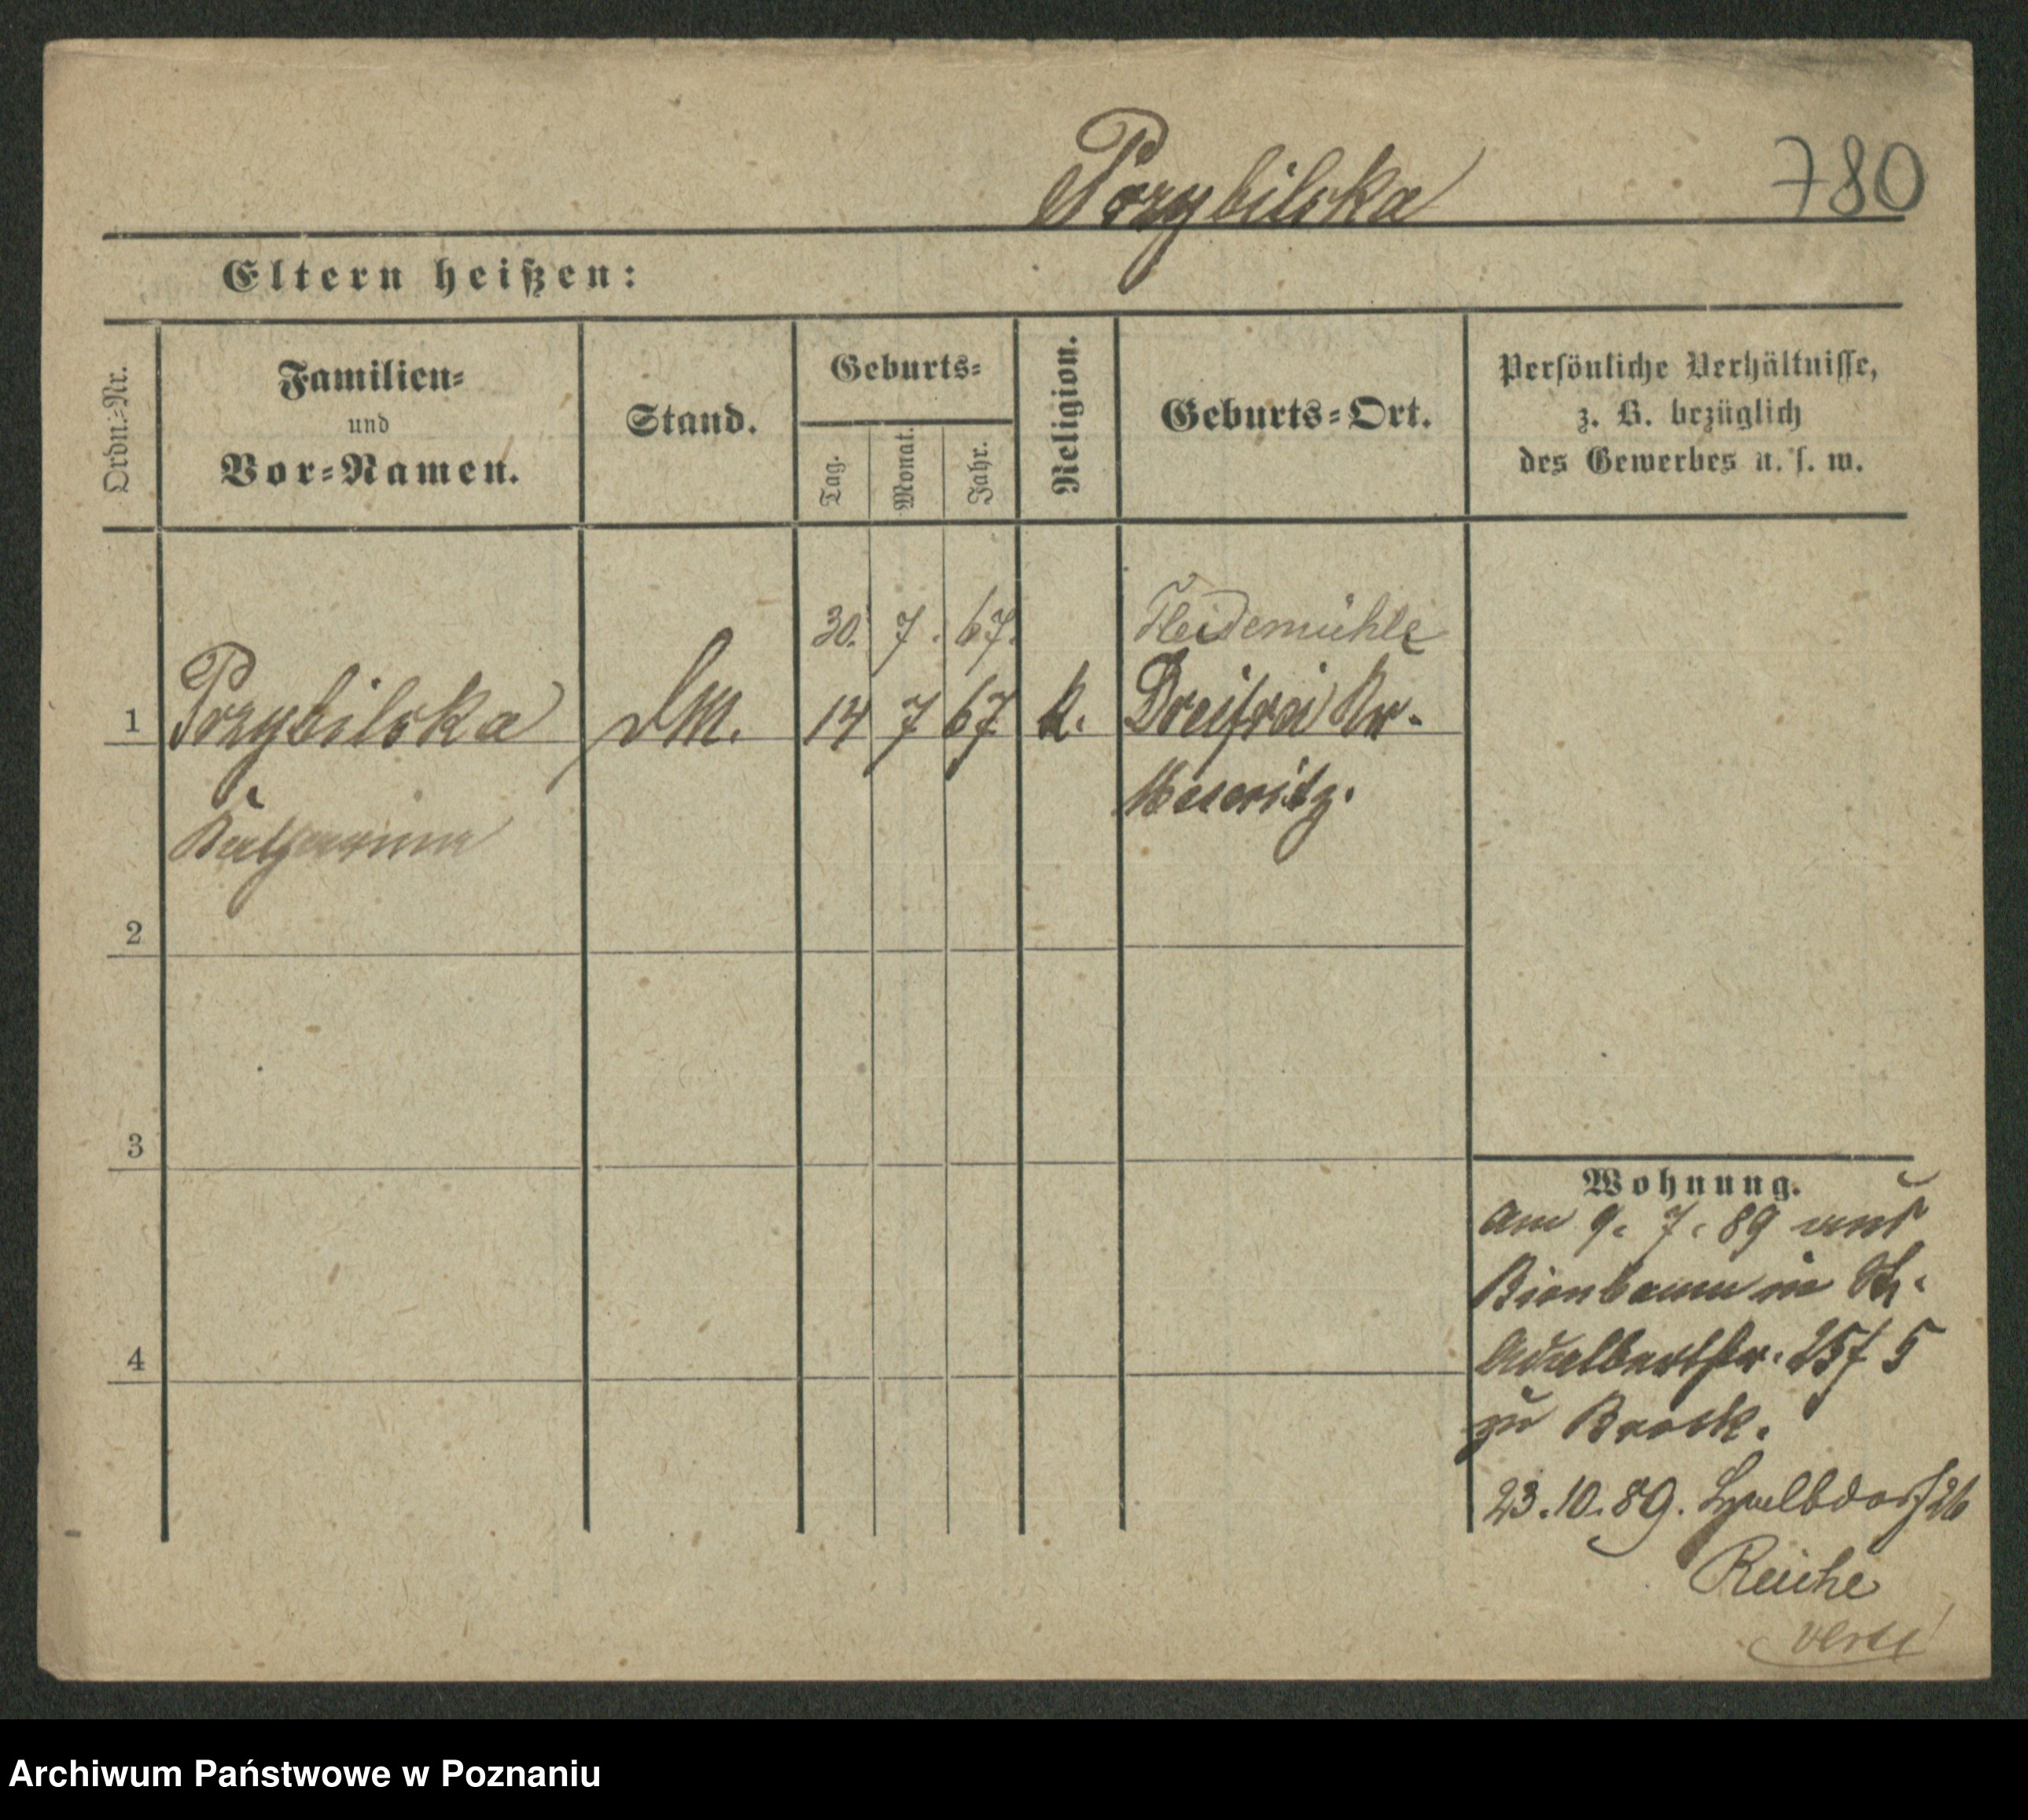 Przybilska
780
Eltern heißen:
Ordn.-Nr.
Familien-
und
Vor-Namen.
Stand.
Geburts-
Tag.
Monat.
Jahr.
Religion.
Geburts-Ort.
Persönliche Verhältnisse,
z. B. bezüglich
des Gewerbes u. s. w.
30. 7. 67. Heidemühle
1 Przybilska DM. 14 7 67 k. Kr.
Meseritz.
2
3
4
Wohnung.
Am 9. 7. 89 aus
Birnbaum in
Adalbertstr. 25
zu
23.10.89.
Reiche
verte
Archiwum Państwowe w Poznaniu